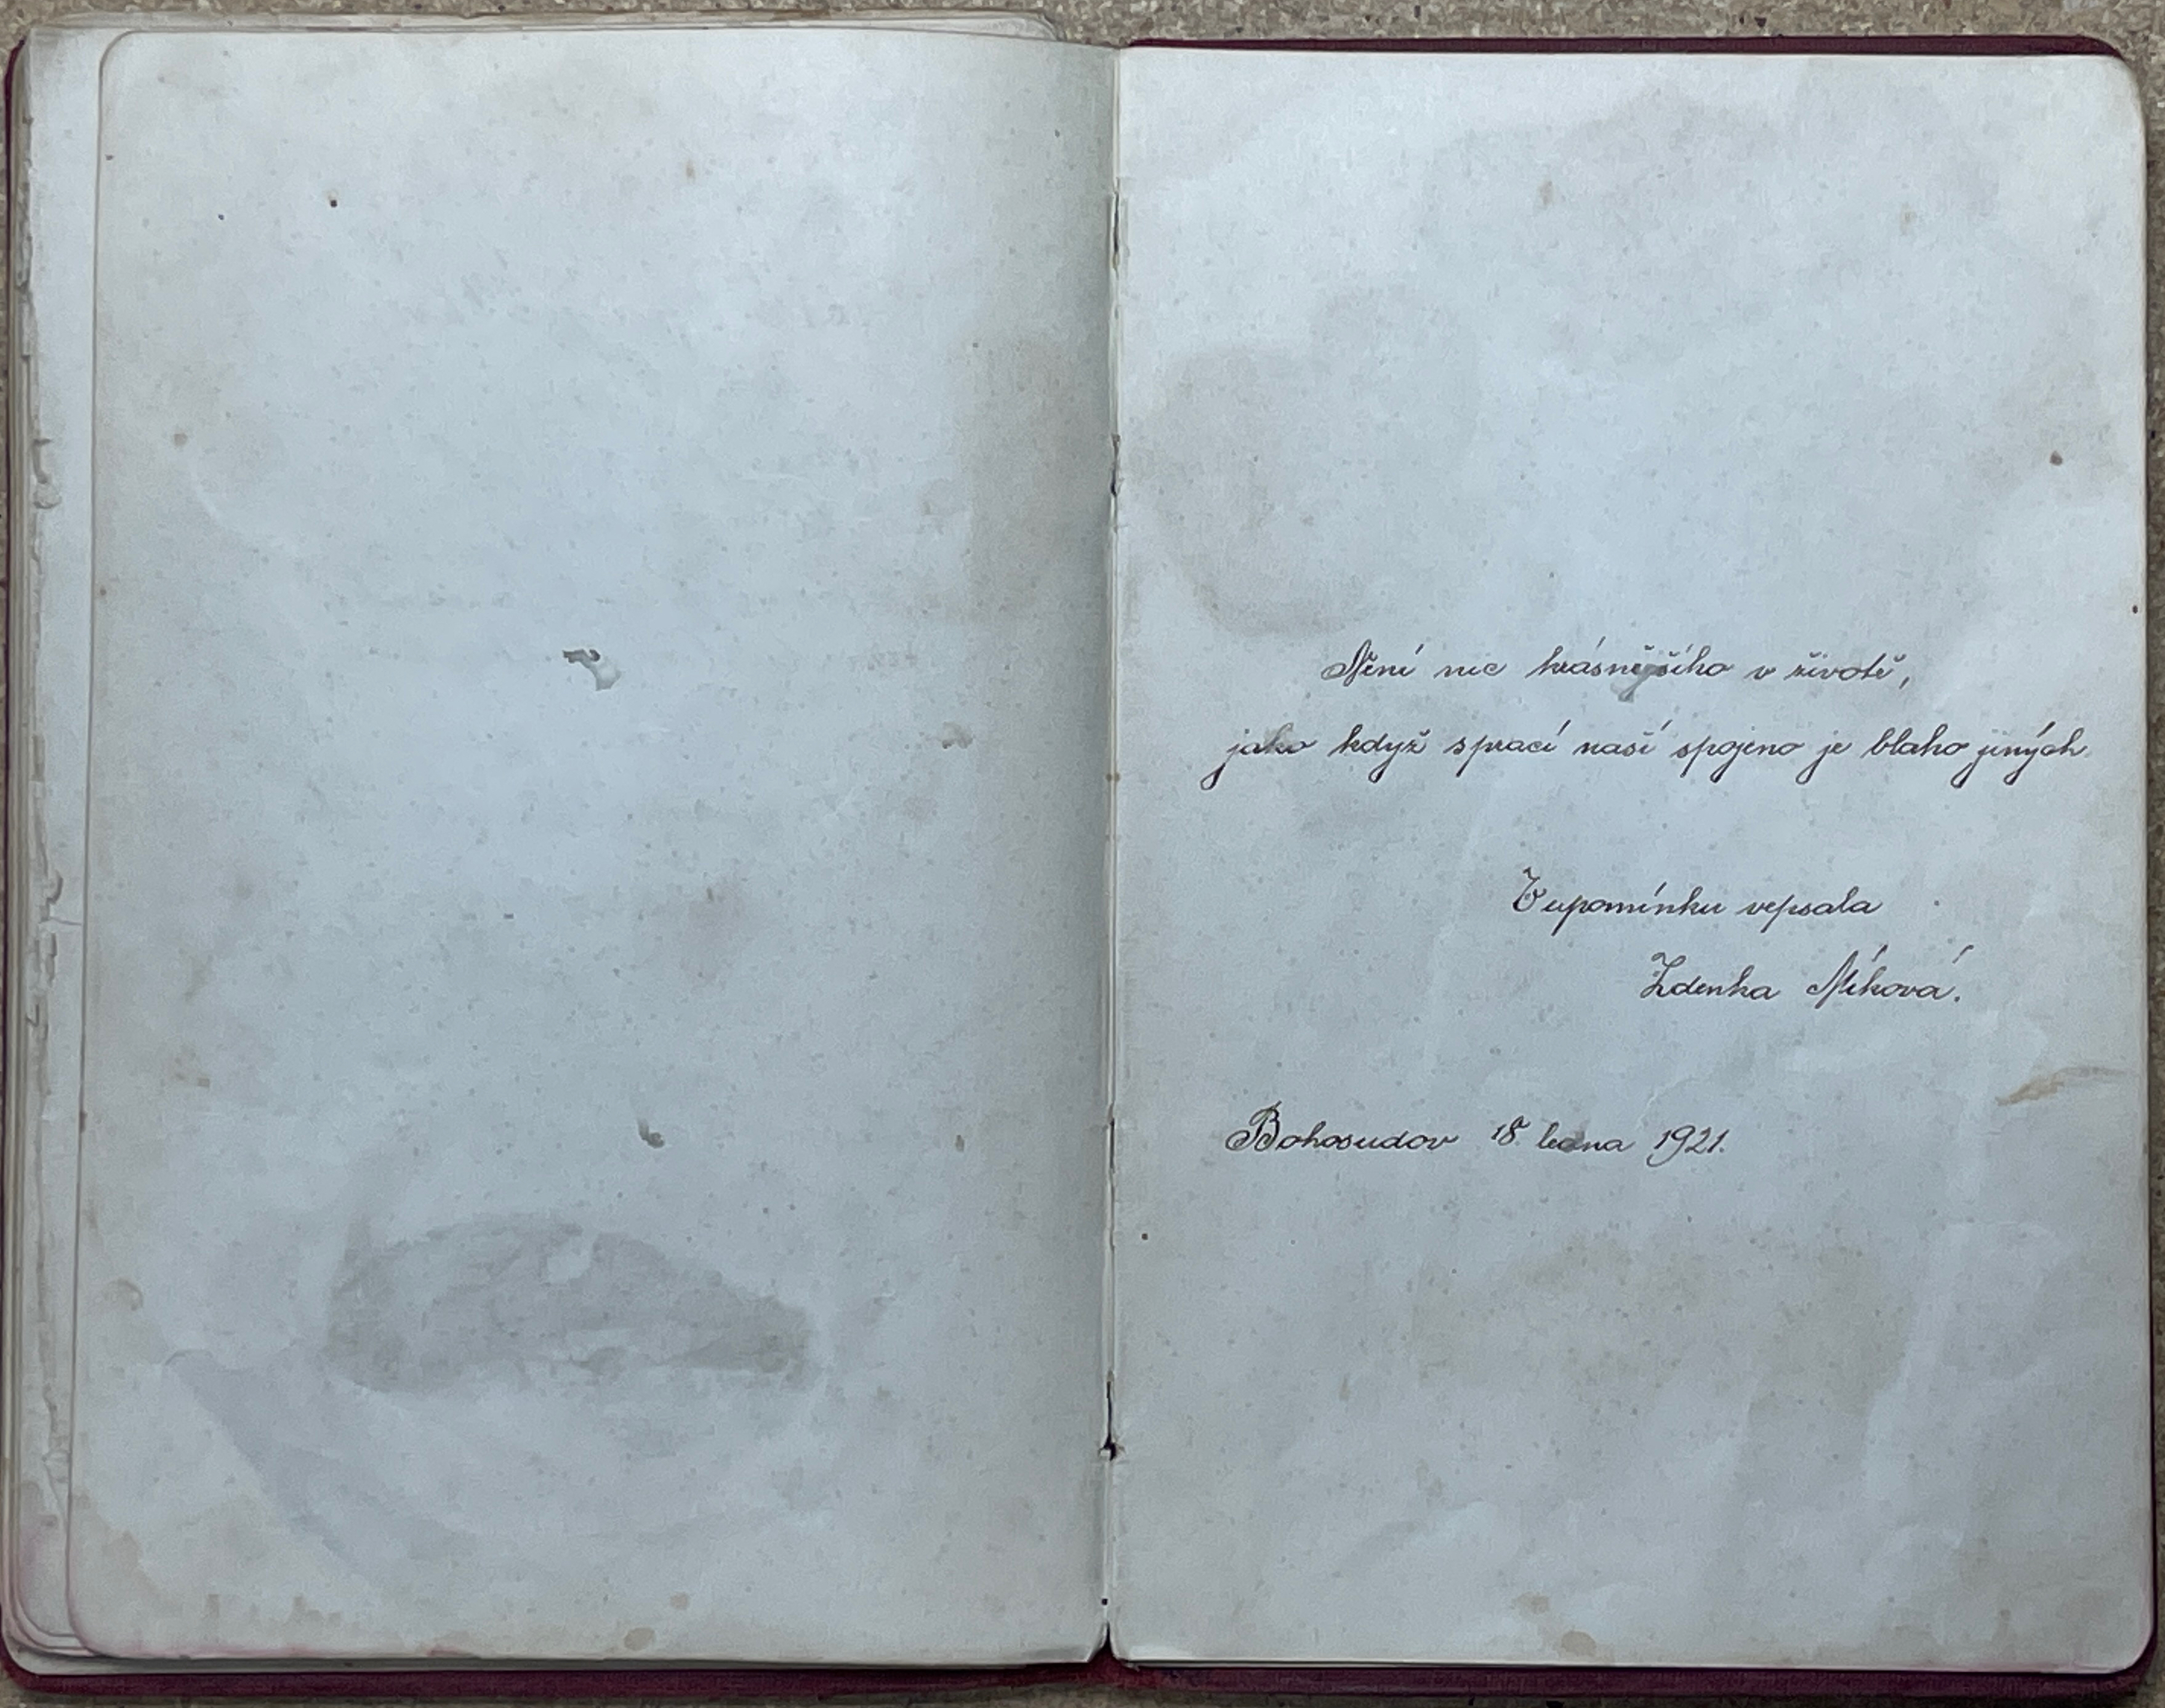 Není nic krásnějšího v životě,
jako když sprací naší spojeno je blaho jiných.
V upomínku vepsala
Zdenka Níková.
Bohosudov 18. ledna 1921.